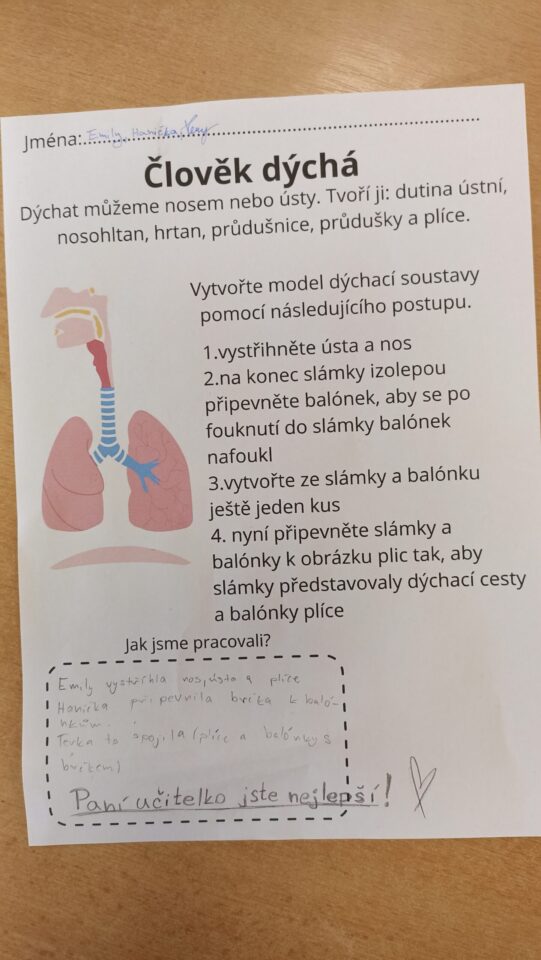 Jména: Emily, Hanička, Tery
Člověk dýchá
Dýchat můžeme nosem nebo ústy. Tvoří ji: dutina ústní,
nosohltan, hrtan, průdušnice, průdušky a plíce.
Vytvořte model dýchací soustavy
pomocí následujícího postupu.
1.vystřihněte ústa a nos
2.na konec slámky izolepou
připevněte balónek, aby se po
fouknutí do slámky balónek
nafoukl
3.vytvořte ze slámky a balónku
ještě jeden kus
4. nyní připevněte slámky a
balónky k obrázku plic tak, aby
slámky představovaly dýchací cesty
a balónky plíce
Jak jsme pracovali?
Emily vystřihla nos, ústa a plíce
Hanička připevnila brčka k baló-
nkům.
Terka to spojila (plíce a balónky s
brčkem)
Paní učitelko jste nejlepší!